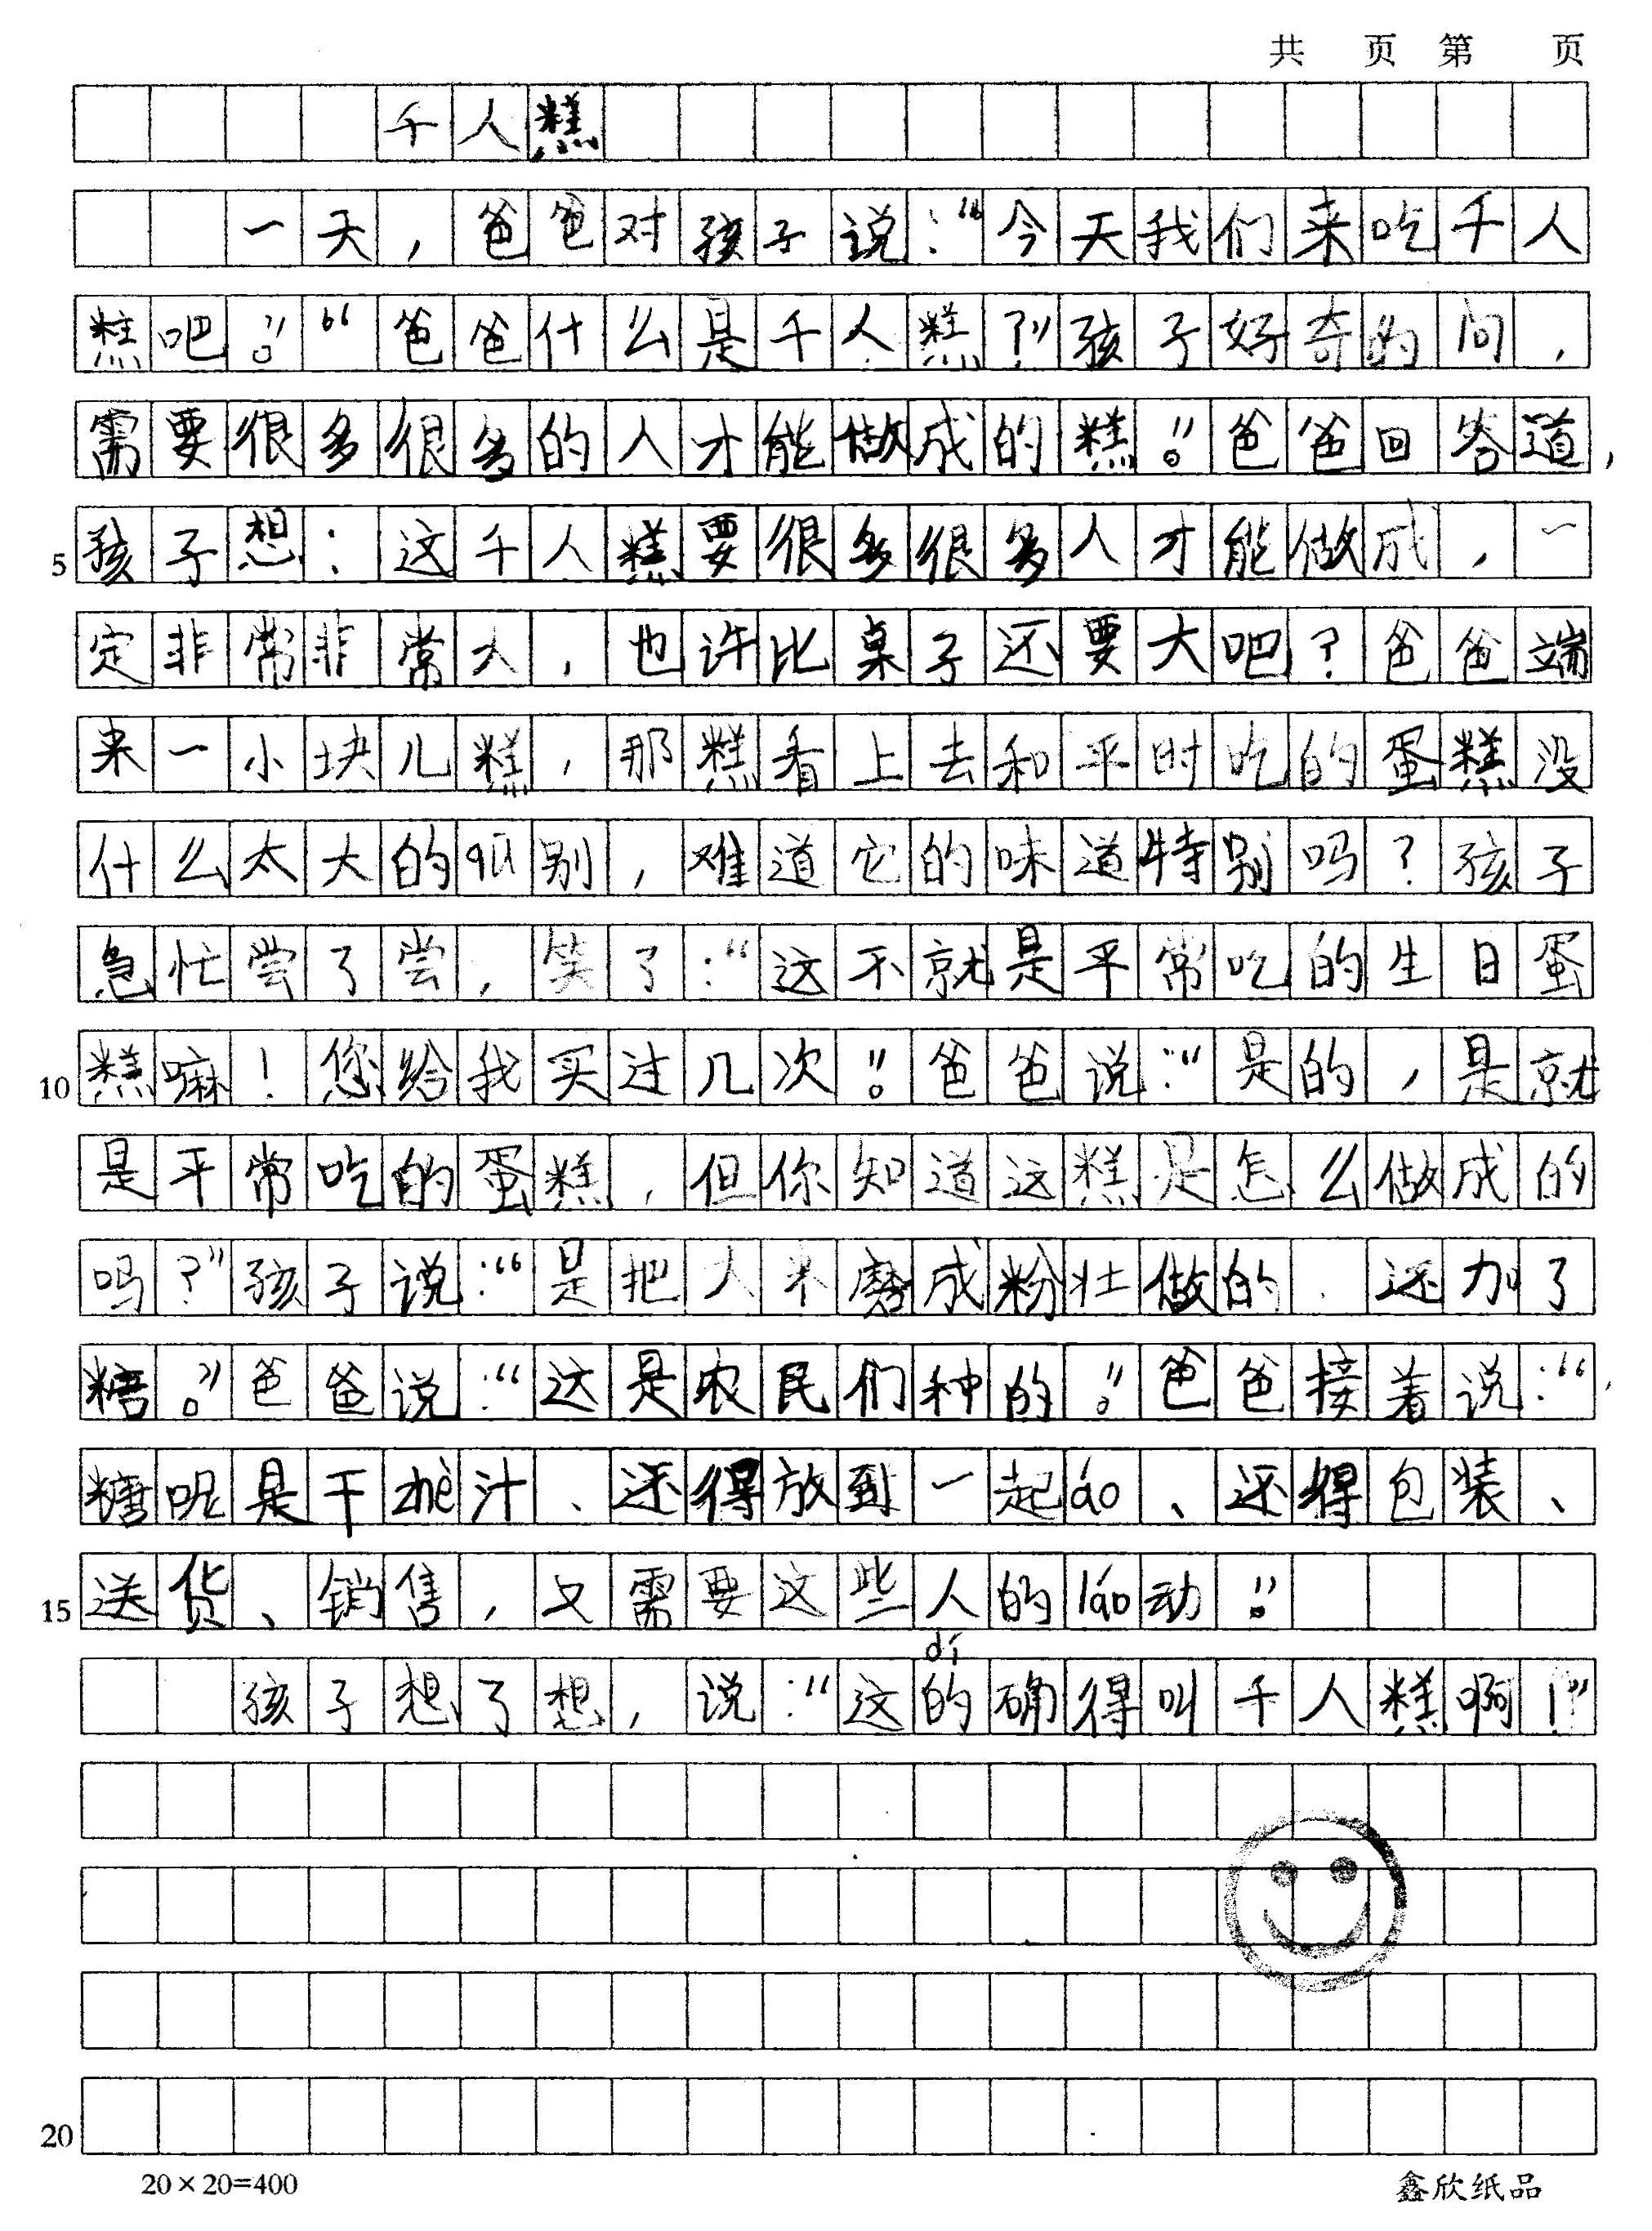 共 页 第 页
千人糕
一天，爸爸对孩子说：“今天我们来吃千人
糕吧。”“爸爸什么是千人糕？”孩子好奇的问，
需要很多很多的人才能做成的糕。”爸爸回答道，
5 孩子想：这千人糕要很多很多人才能做成，一
定非常非常大，也许比桌子还要大吧？爸爸端
来一小块儿糕，那糕看上去和平时吃的蛋糕没
什么太大的qū别，难道它的味道特别吗？孩子
急忙尝了尝，笑了：“这不就是平常吃的生日蛋
10 糕嘛！您给我买过几次。”爸爸说：“是的，是就
是平常吃的蛋糕，但你知道这糕是怎么做成的
吗？”孩子说：“是把大米磨成粉壮做的、还加了
糖。”爸爸说：“这是农民们种的。”爸爸接着说：“
糖呢是干zhè汁、还得放到一起áo、还得包装、
15 送货、销售，又需要这些人的láo动。”
dí
孩子想了想，说：“这的确得叫千人糕啊！”
20
20×20=400 鑫欣纸品